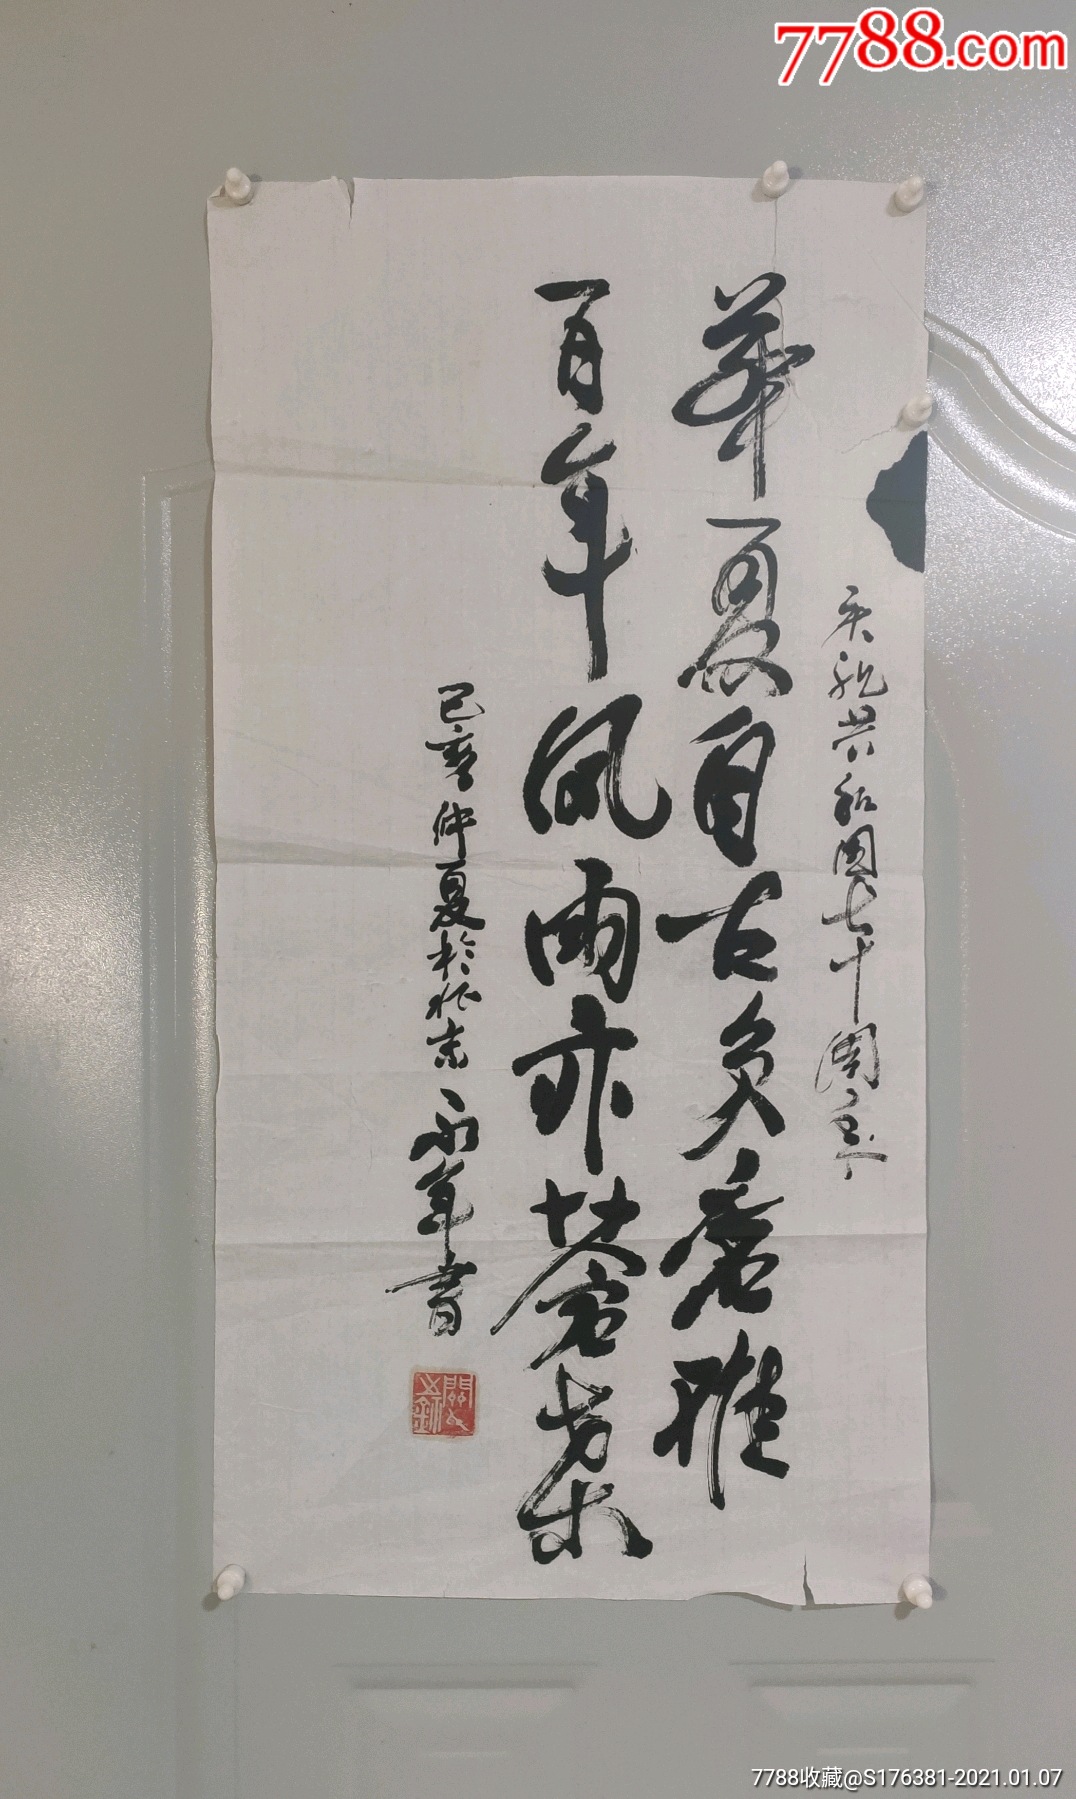 7788.com
庆祝共和国七十周年
華夏自古多磨难
百年风雨亦蒼桑
己亥仲夏於北京 永年書
7788收藏@S176381-2021.01.07